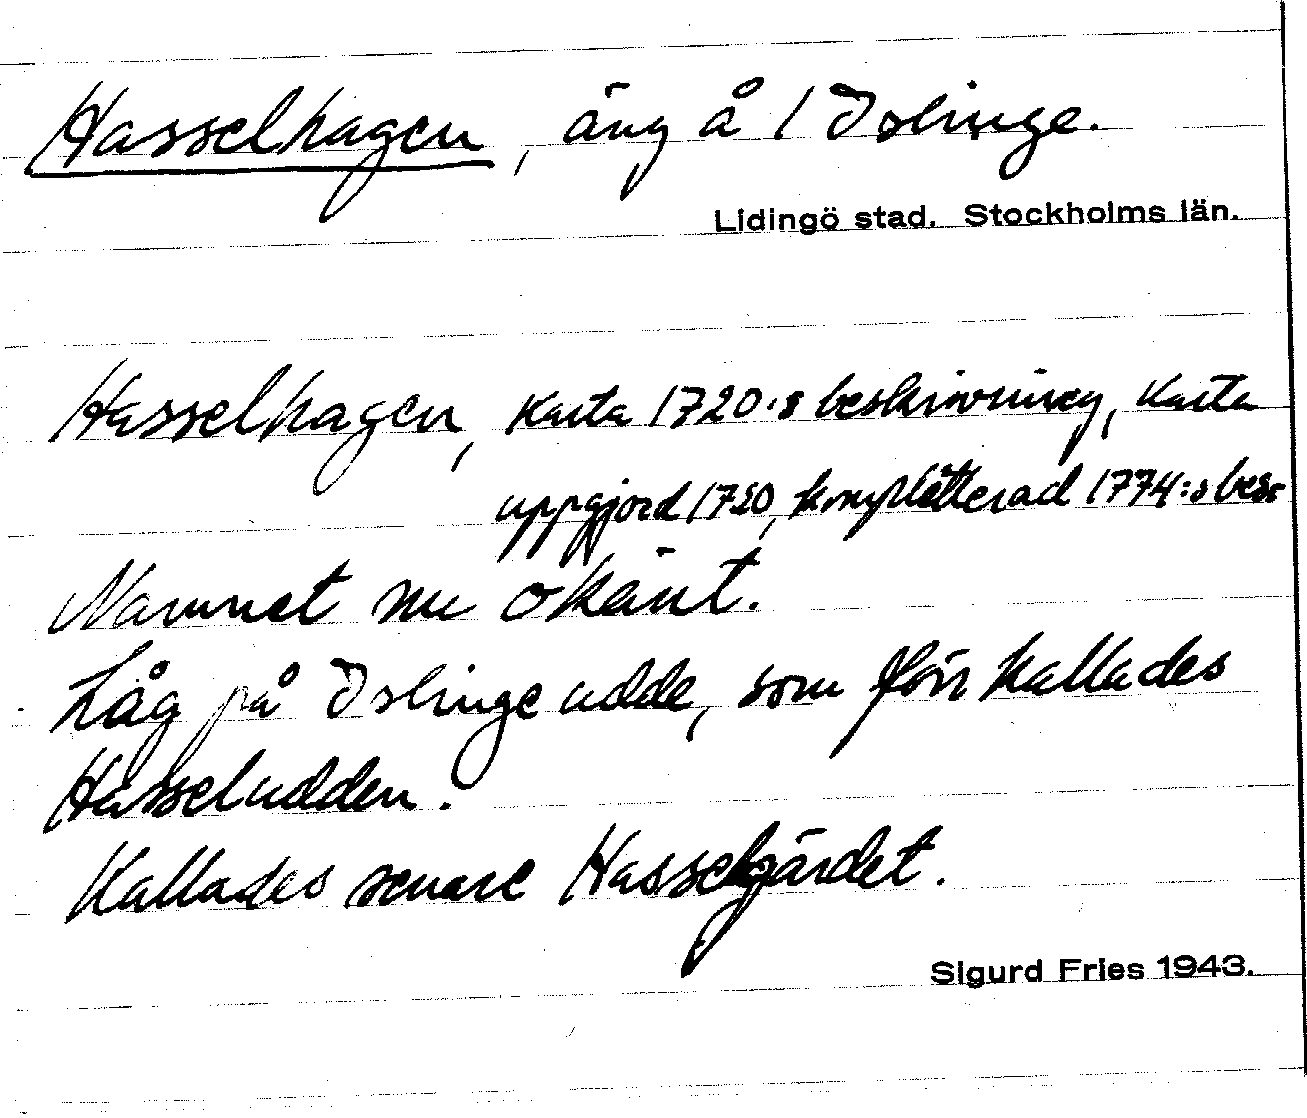 Hasselhagen, äng å 1 Islinge.
Lidingö stad. Stockholms län.
Hasselhagen, karta 1720:s beskrivning, karta
uppgjord 1720, kompletterad 1774:s besr
Namnet nu okänt.
Låg på Islinge udde, som förr kallades
Hasseludden.
Kallades senare Hasselgärdet.
Sigurd Fries 1943.